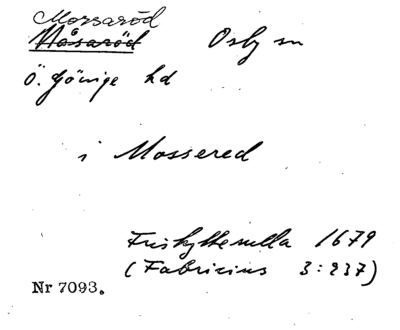 Morsaröd
Måsaröd Osby sn
Ö. Göinge hd
i Mossered
Friskytterulla 1679
(Fabricius 3:237)
Nr 7093.